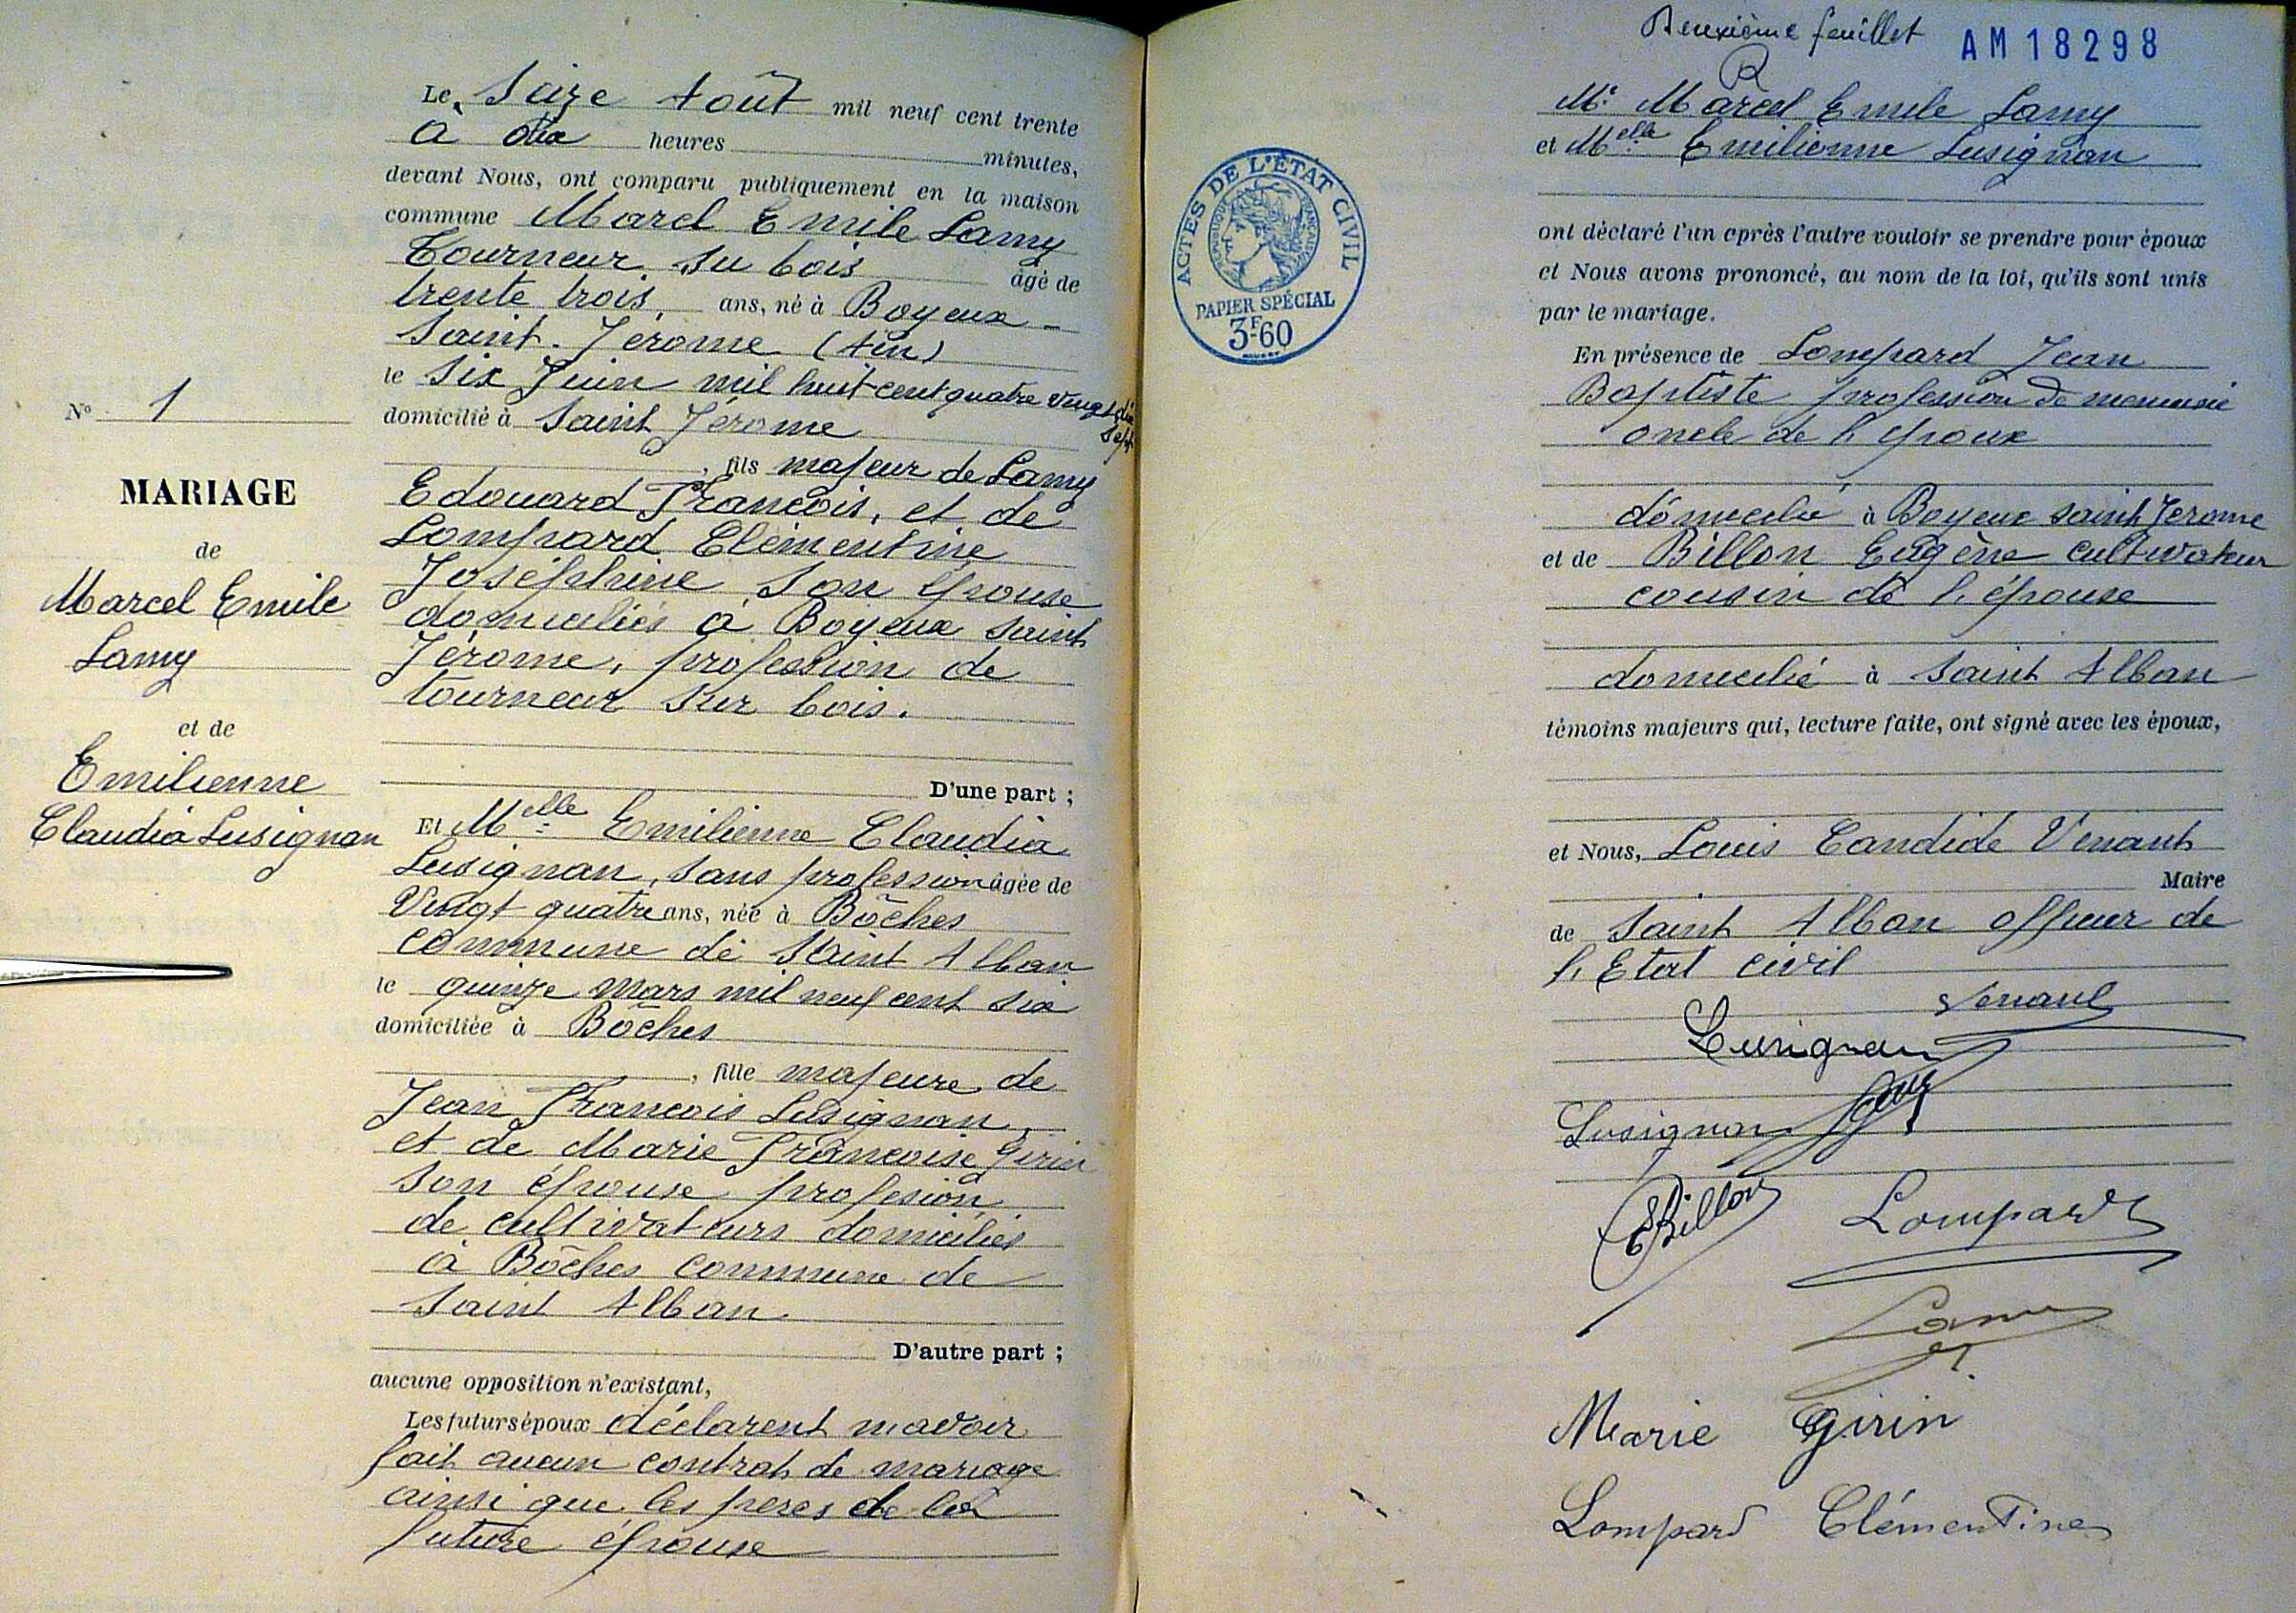 Le, Seize Août mil neuf cent trente
à dix heures minutes,
devant Nous, ont comparu publiquement en la maison
commune Marcel Emile Lamy
Tourneur su bois âgé de
trente trois, ans, né à Boyeux-
Saint-Jérome (Ain)
le Six Juin mil huit cent quatre vingt dix
sept
domicilié à Saint Jérome
, fils majeur de Lamy
Edouard François, et de
Lompard Clémentine
Joséphine son épouse
domiciliés à Boyeux Saint
Jérome, profession de
tourneur sur bois.
D'une part ;
Et Melle Emilienne Claudia
Lusignan, sans profession âgée de
Vingt quatre ans, née à Bôches
commune de Saint Alban
le quinze mars mil neuf cent six
domiciliée à Bôches
, fille majeure de
Jean François Lusignan,
et de Marie Françoise Girin
son épouse profesion
de cultivateurs domiciliés
à Bôches commune de
Saint Alban
D'autre part ;
aucune opposition n'existant,
Les futurs époux déclarent n'avoir
fait aucun contrat de mariage
ainsi que les peres de la
future épouse
N° 1
MARIAGE
de
Marcel Emile
Lamy
et de
Emilienne
Claudia Lusignan
Deuxième feuillet AM18298
R
Mr Marcel Emile Lamy
et Melle Emilienne Lusignan
ACTES DE L'ÉTAT CIVIL
RÉPUBLIQUE FRANÇAISE
PAPIER SPÉCIAL
3F60
ont déclaré l'un après l'autre vouloir se prendre pour époux
et Nous avons prononcé, au nom de la loi, qu'ils sont unis
par le mariage.
En présence de Lompard Jean
Baptiste profession de menuisie
oncle de l'époux
domicilié à Boyeux Saint Jerome
et de Billon Eugène cultivateur
cousin de l'épouse
domicilié à Saint Alban
témoins majeurs qui, lecture faite, ont signé avec les époux,
et Nous, Louis Candide Venant
Maire
de Saint Alban officier de
l'Etat civil
Venant
Lusignan
Lusignan Lamy
EBillon Lompard
Lamy
Marie Girin
Lompard Clémentine